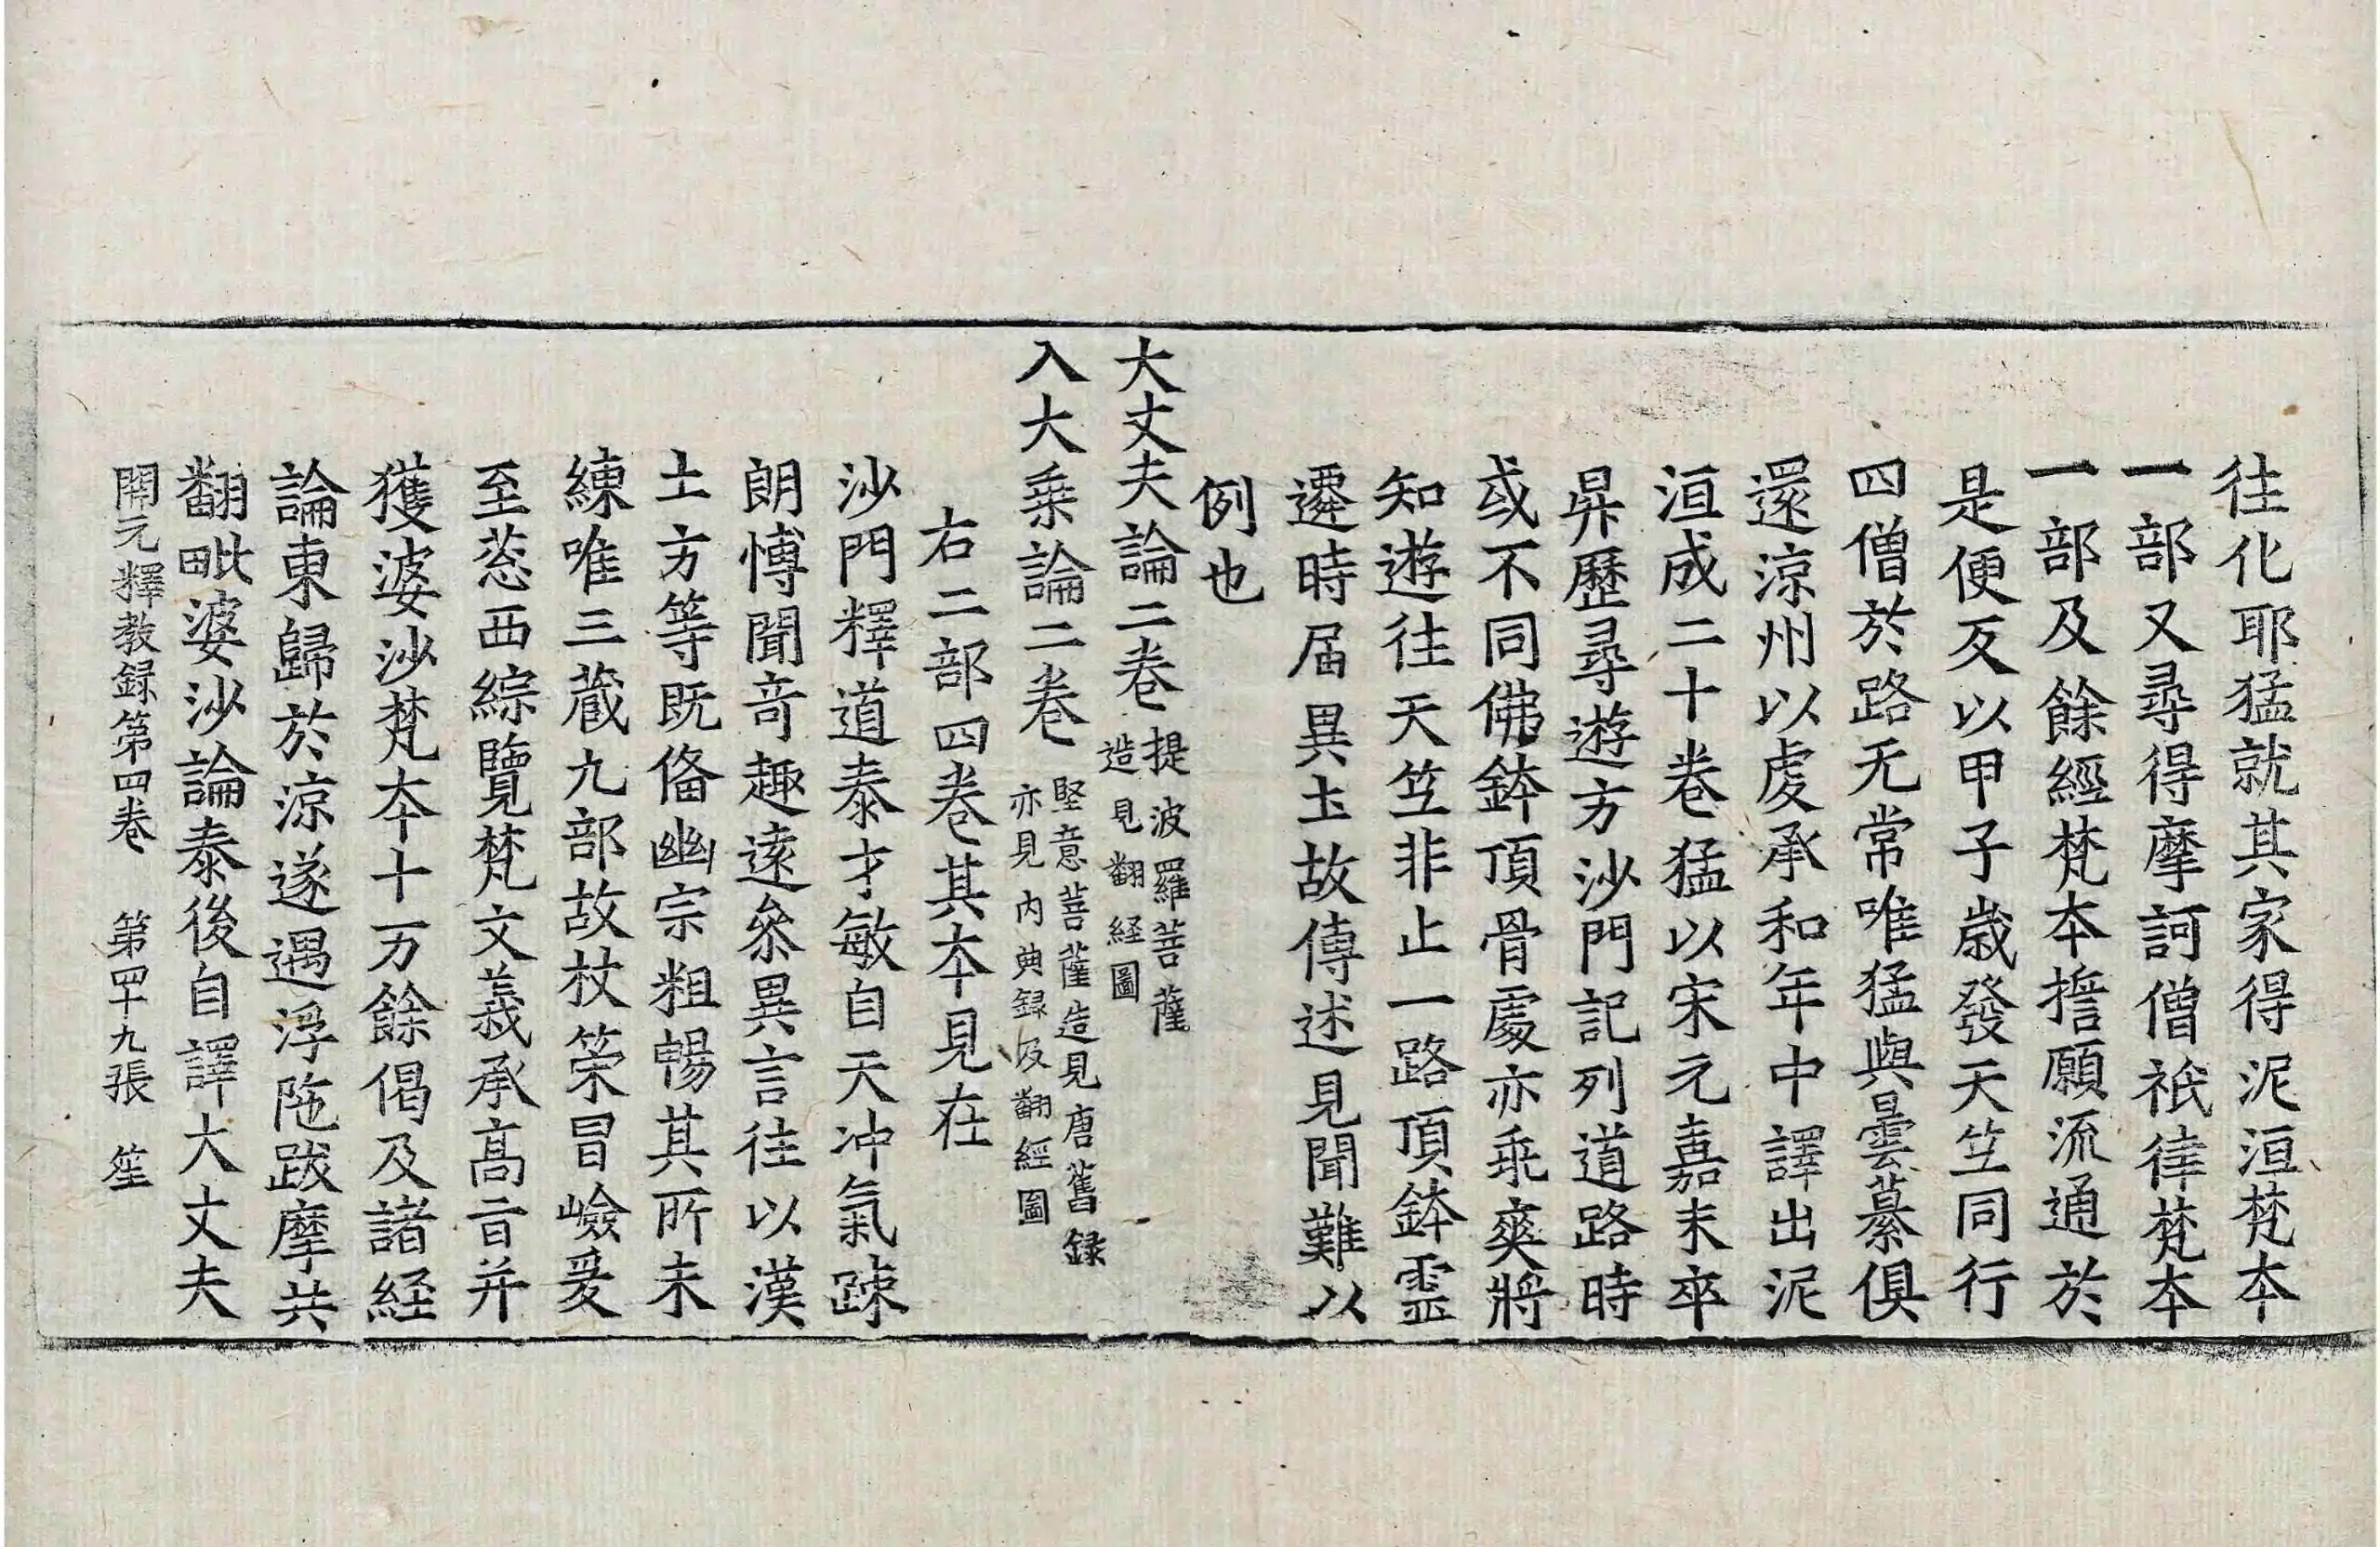 往化耶猛就其家得泥洹梵本
一部又尋得摩訶僧祇律梵本
一部及餘經梵本擔願流通於
是便反以甲子歲發天竺同行
四僧於路无常唯猛與曇纂俱
還涼州以虔承和年中譯出泥
洹成二十卷猛以宋元嘉末卒
昇歷尋遊方沙門記列道路時
或不同佛鉢頂骨處亦乖爽將
知遊往天竺非止一路頂鉢靈
遷時届異圡故傳述見聞難以
例也
大丈夫論二卷提波羅菩薩
造見翻経圖
入大乗論二卷堅意菩薩造見唐舊録
亦見内典録及翻經圖
右二部四卷其本見在
沙門釋道泰才敏自天冲氣踈
朗愽聞竒趣遠叅異言往以漢
土方等既俻幽宗粗暢其所未
練唯三蔵九部故杖䇿冒嶮爰
至葱西綜覽梵文義承髙旨并
獲婆沙梵本十万餘偈及諸経
論東歸於涼遂遇浮陁跋摩共
翻毗婆沙論泰後自譯大丈夫
開元釋教録第四卷 第四十九張 笙